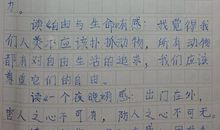 力。
读《自由与生命》有感：我觉得我
们人类不应该扑抓动物，所有动物
都有对自由生活的追求，我们应该
尊重它们的自由。
读《一个夜晚》有感：出门在外，
害人之心不可有，防人之心不可无，